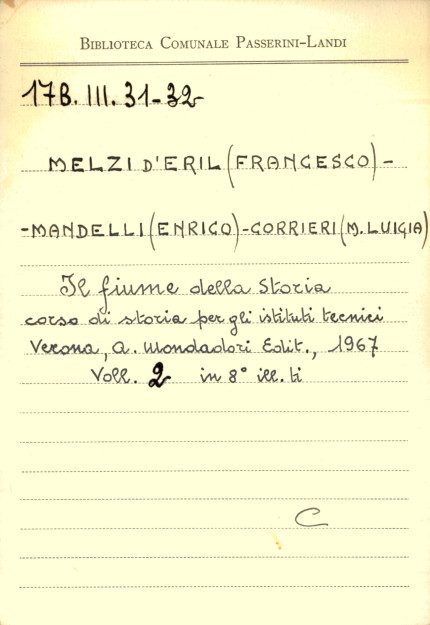 BIBLIOTECA COMUNALE PASSERINI-LANDI
17B. III. 31-32
MELZI D'ERIL (FRANCESCO) -
-MANDELLI (ENRICO)-CORRIERI (M. LUIGIA)
Il fiume della Storia
corso di storia per gli istituti tecnici
Verona, A. Mondadori Edit., 1967
Voll. 2 in 8° ill. ti
C